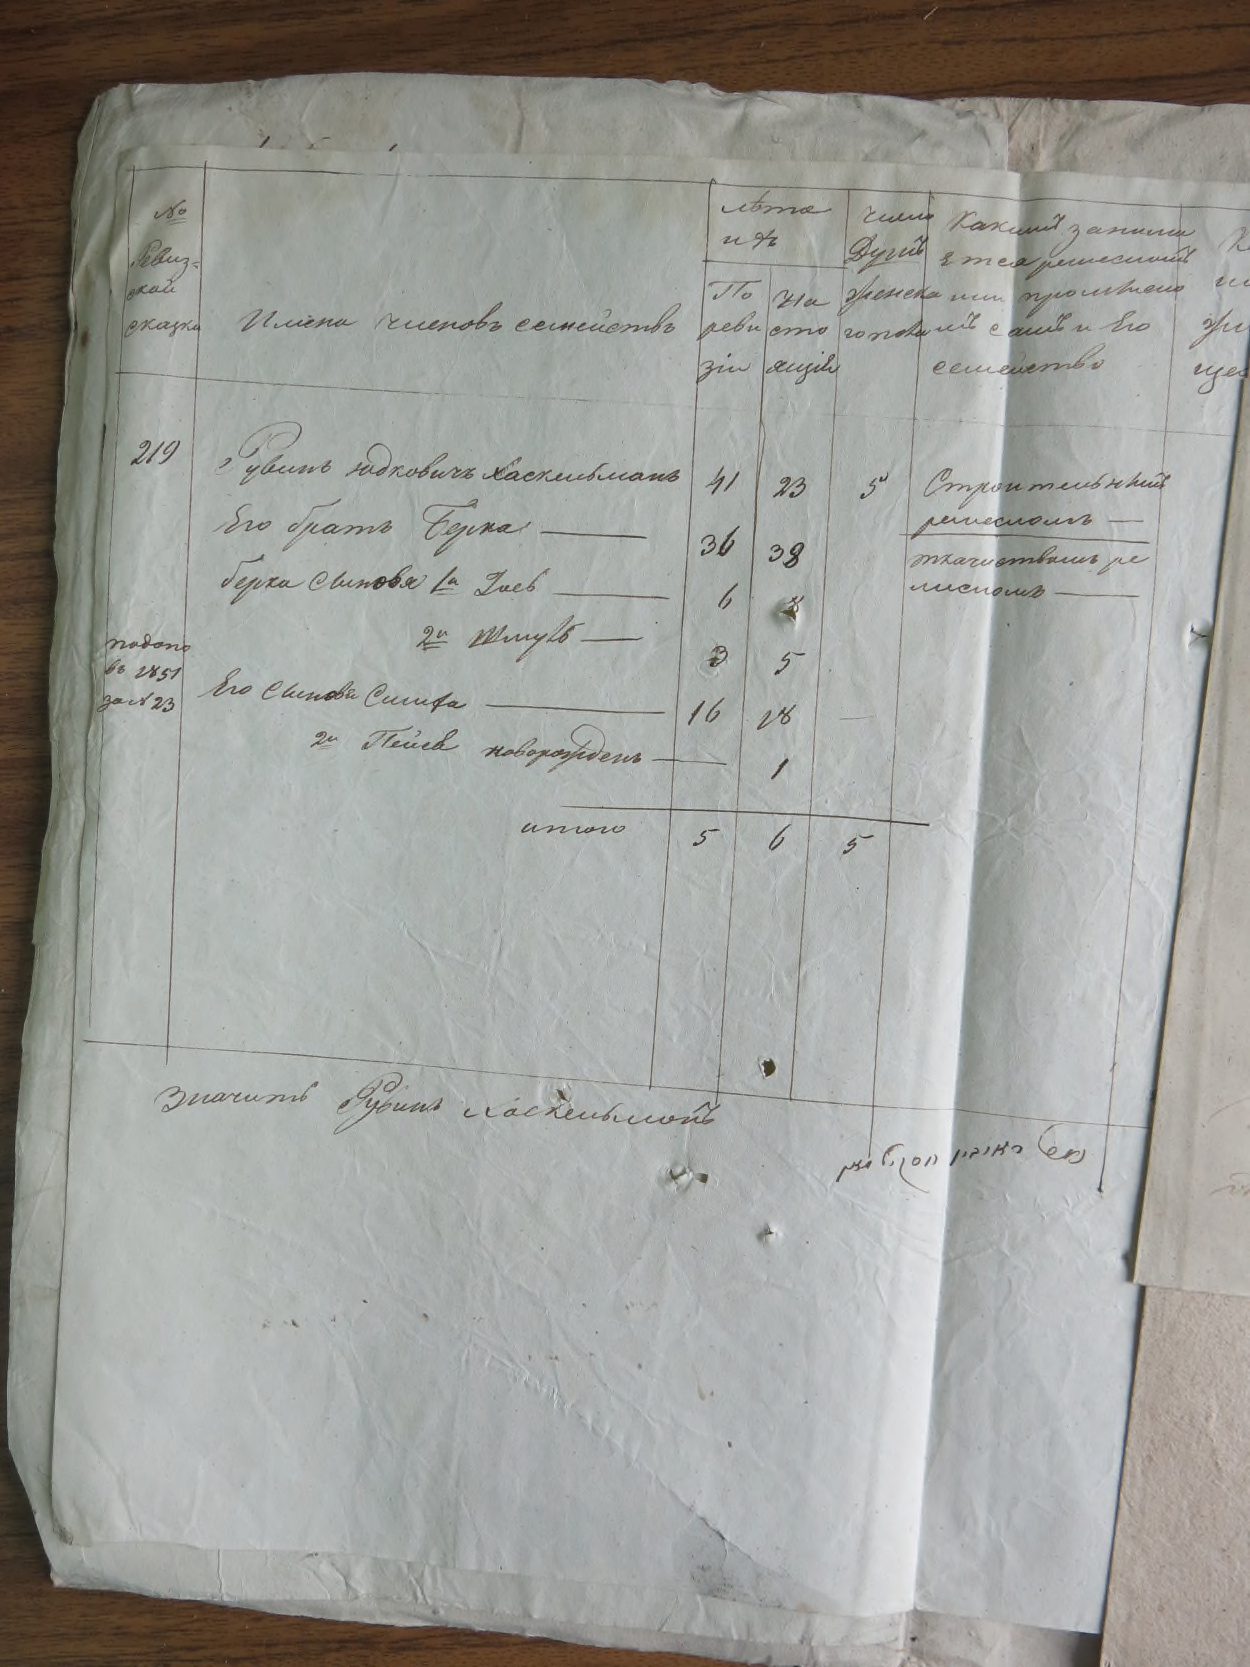 №
Ревиз=
ской
сказки
Имена членовъ семействъ
лѣта
ихъ
По
реви
зіи
На
сто
ящія
число
Душъ
женска
го пола
Какимъ занима
ется ремесломъ
или промысло
мъ самъ и Его
семейство
219
Рувинъ Юдковичъ Хаскельманъ 41 23 5
Строительнымъ
ремесломъ —
Его братъ Берка — 36 38
ткачествомъ ре
месломъ —
Берка сыновья 1й — 6
2й Шмуль — 3 5
подано
въ 1851
за №23
Его сыновья — 16 18 —
2й Пейсе новорожденъ — 1
итого 5 6 5
Значитъ Рувинъ Хаскельманъ
ראובין